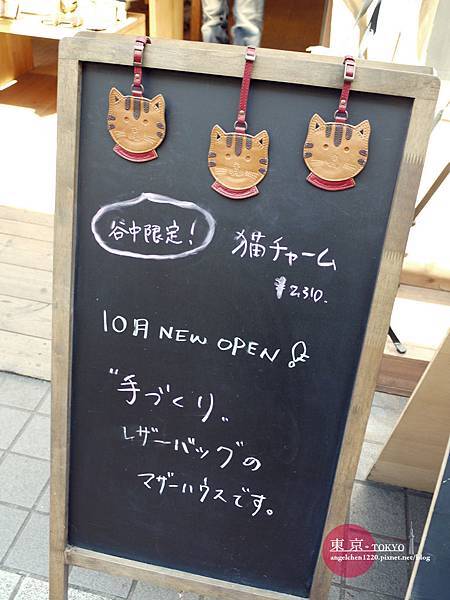 谷中限定!
猫チャーム
¥2,310.
10月 NEW OPEN!
"手づくり"
レザーバッグの
マザーハウスです。
東京-TOKYO
angelchen1220.pixnet.net/blog